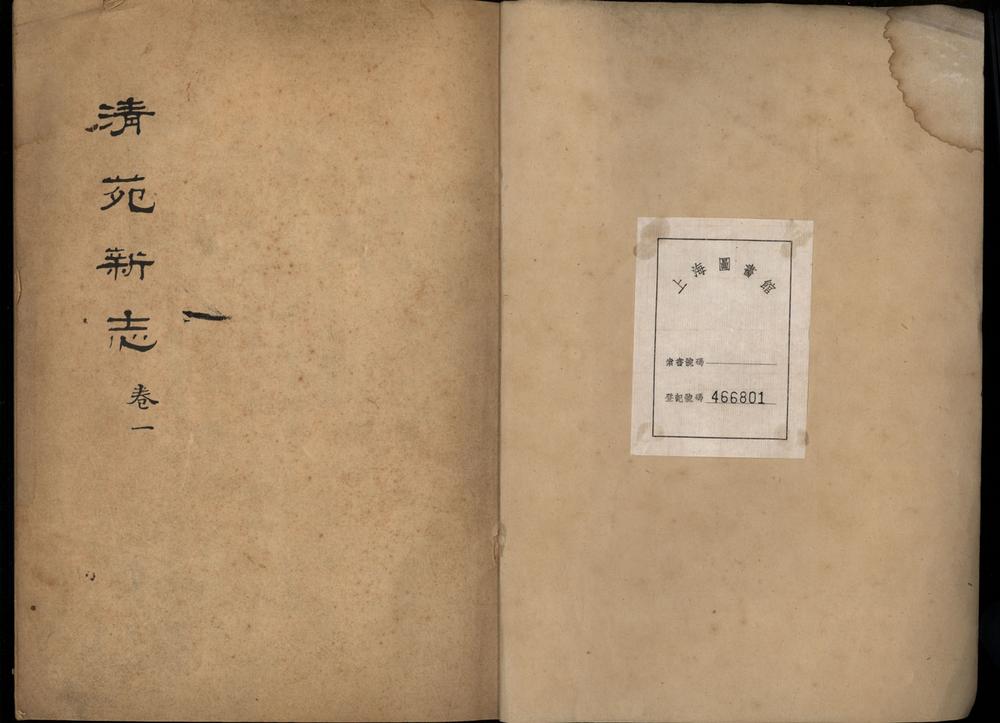 清苑新志 卷一
一
上海圖書館
索書號碼
登記號碼 466801